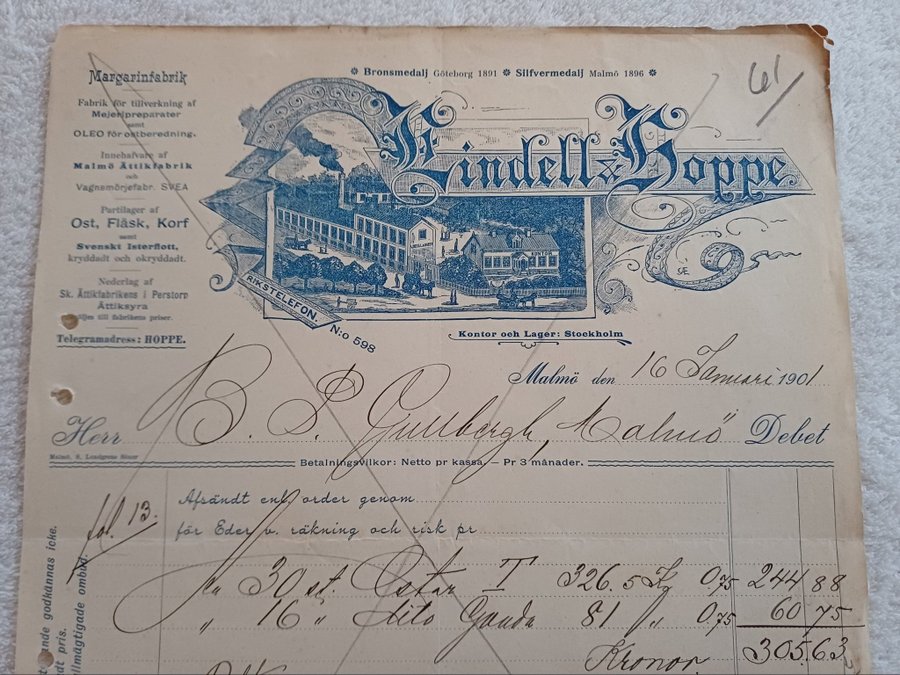 ❉ Bronsmedalj Göteborg 1891 ❉ Silfvermedalj Malmö 1896 ❉
61/
Lindell & Hoppe
Margarinfabrik
Fabrik för tillverkning af
Mejeripreparater
samt
OLEO för ostberedning.
Innehafvare af
Malmö Ättikfabrik
och
Vagnsmörjefabr. SVEA
Partilager af
Ost, Fläsk, Korf
samt
Svenskt Isterflott,
kryddadt och okryddadt.
Nederlag af
Sk. Ättikfabrikens i Perstorp
Ättiksyra
säljes till fabrikens priser.
Telegramadress: HOPPE.
RIKSTELEFON. N:o 598
Kontor och Lager: Stockholm
Malmö den 16 Januari 1901
Herr B. P. Malmö Debet
Malmö, S. Lundgrens Söner
Betalningsvilkor: Netto pr kassa. — Pr 3 månader.
fol. 13.
Afsändt enl. order genom
för Eder v. räkning och risk pr
30 st. Ostar T 326.5 Kg 0,75 244 88
" 16 " dito Gouda 81 " 0,75 60 75
Kronor 305.63
ande godkännas icke.
dt pris.
llmägtigade ombud.